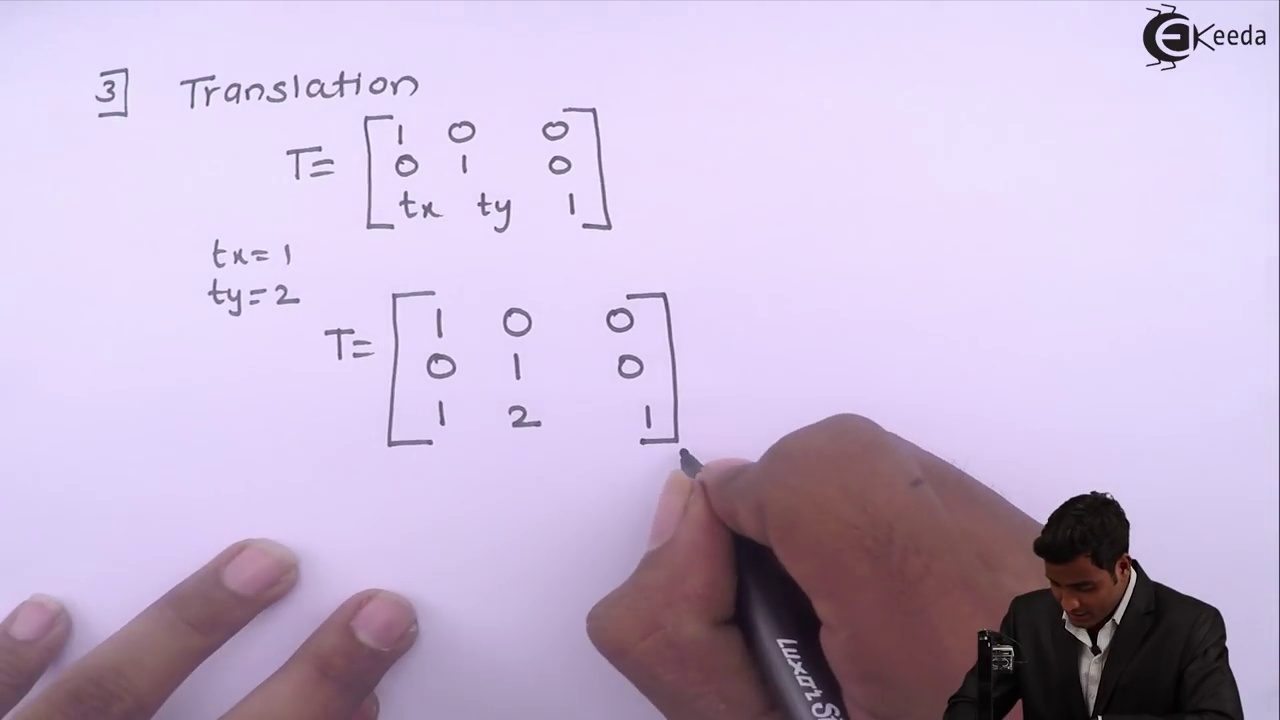 Keeda
3] Translation
T= [1 0 0
0 1 0
tx ty 1]
tx=1
ty=2
T= [1 0 0
0 1 0
1 2 1]
Luxor